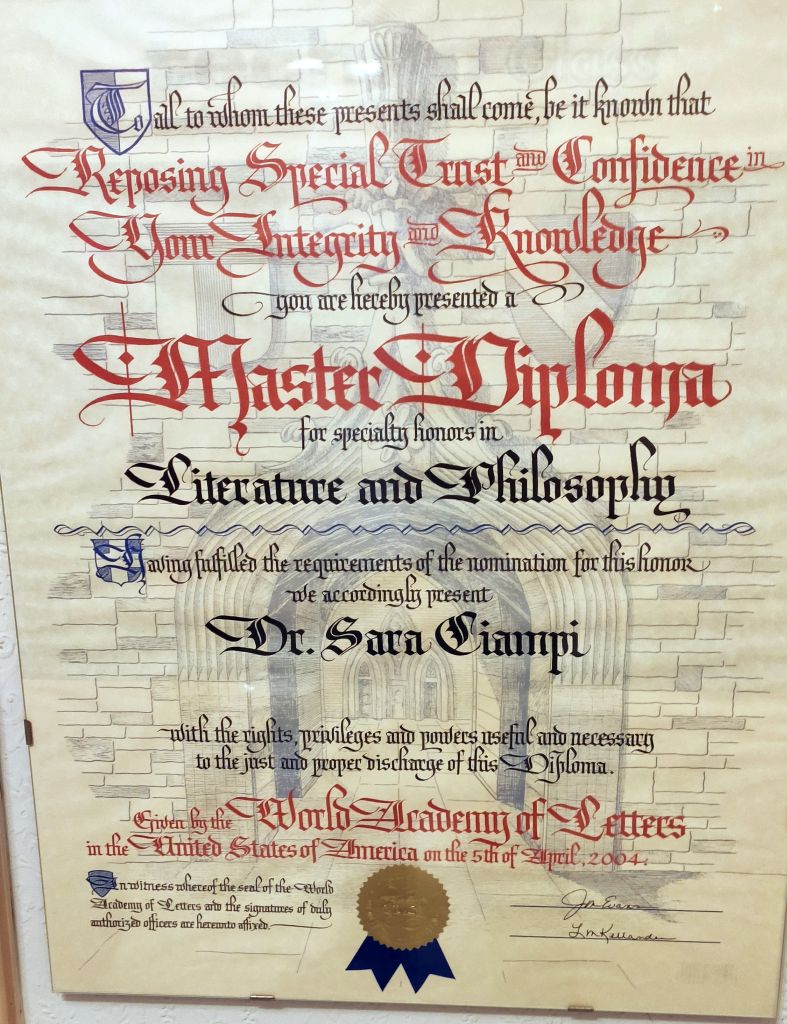 To all to whom these presents shall come, be it known that
Reposing Special Trust and Confidence in
Your Integrity and Knowledge
you are hereby presented a
Master Diploma
for specialty honors in
Literature and Philosophy
Having fulfilled the requirements of the nomination for this honor
we accordingly present
Dr. Sara Ciampi
with the rights, privileges and powers useful and necessary
to the just and proper discharge of this Diploma.
Given by the World Academy of Letters
in the United States of America on the 5th of April, 2004.
In witness whereof the seal of the World
Academy of Letters and the signatures of duly
authorized officers are hereunto affixed.